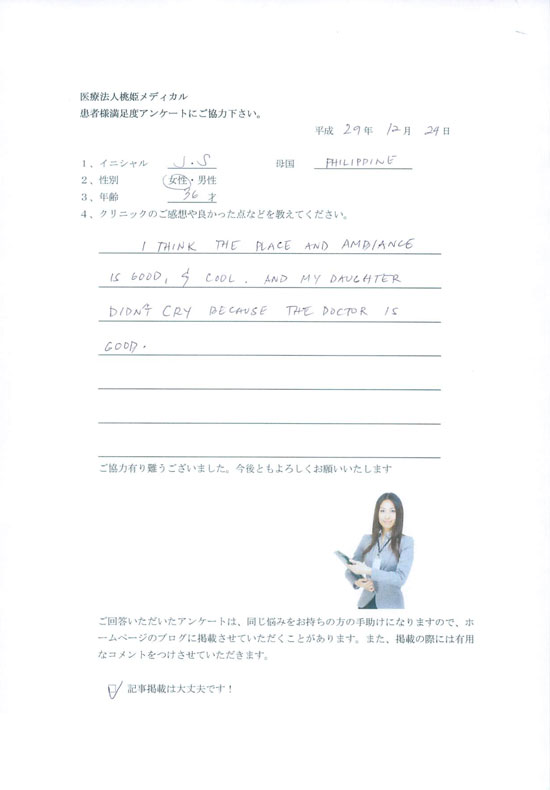 医療法人桃姫メディカル
患者様満足度アンケートにご協力下さい。
平成 29年 12月 24日
1、イニシャル J.S 母国 PHILIPPINE
2、性別 女性・男性
3、年齢 36 才
4、クリニックのご感想や良かった点などを教えてください。
I THINK THE PLACE AND AMBIANCE
IS GOOD, & COOL. AND MY DAUGHTER
DIDN'T CRY BECAUSE THE DOCTOR IS
GOOD.
ご協力有り難うございました。今後ともよろしくお願いいたします
ご回答いただいたアンケートは、同じ悩みをお持ちの方の手助けになりますので、ホ
ームページのブログに掲載させていただくことがあります。また、掲載の際には有用
なコメントをつけさせていただきます。
☑ 記事掲載は大丈夫です！